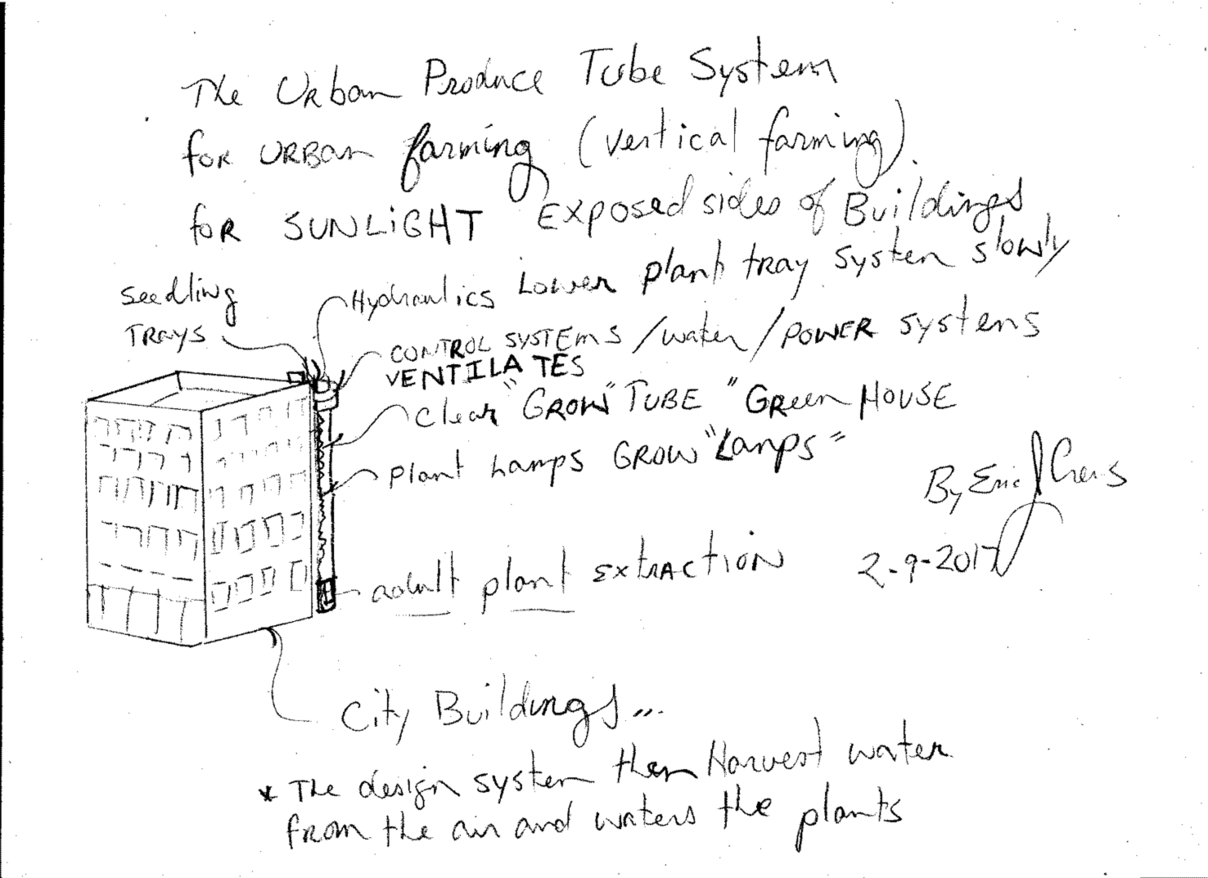 The Urban Produce Tube System
for URBAN farming (vertical farming).
for SUNLIGHT Exposed sides of Buildings
Seedling
TRAYS
Hydraulics Lower plant tray system slowly
CONTROL SYSTEMS / water / POWER systems
VENTILATES
Clear "GROW" TUBE "Green HOUSE
Plant Lamps GROW "Lamps"
By Eric J
2-9-2017
adult plant EXTRACTION
City Buildings...
* The design system then Harvest water
from the air and waters the plants